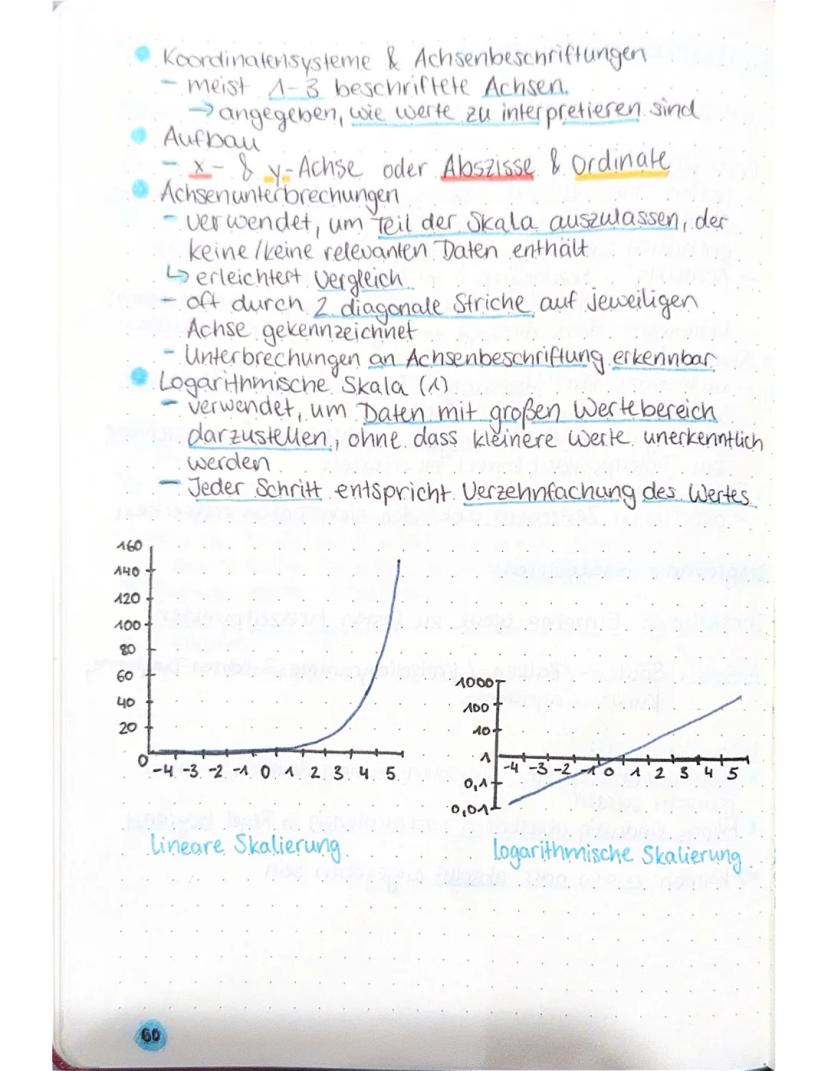 Koordinatensysteme & Achsenbeschriftungen
- meist 1-3 beschriftete Achsen
→ angegeben, wie Werte zu interpretieren sind
Aufbau
- x- & y-Achse oder Abszisse & Ordinate
Achsenunterbrechungen
- verwendet, um Teil der Skala auszulassen, der
keine/keine relevanten Daten enthält
↳ erleichtert Vergleich
- oft durch 2 diagonale Striche auf jeweiligen
Achse gekennzeichnet
- Unterbrechungen an Achsenbeschriftung erkennbar
Logarithmische Skala (1)
- verwendet, um Daten mit großen Wertebereich
darzustellen, ohne dass kleinere Werte unerkenntlich
werden
- Jeder Schritt entspricht Verzehnfachung des Wertes
160
140
120
100
80
60
40
20
0
-4 -3 -2 -1 0 1 2 3 4 5
Lineare Skalierung
1000
100
10
1
0,1
0,01
-4 -3 -2 -1 0 1 2 3 4 5
logarithmische Skalierung
60